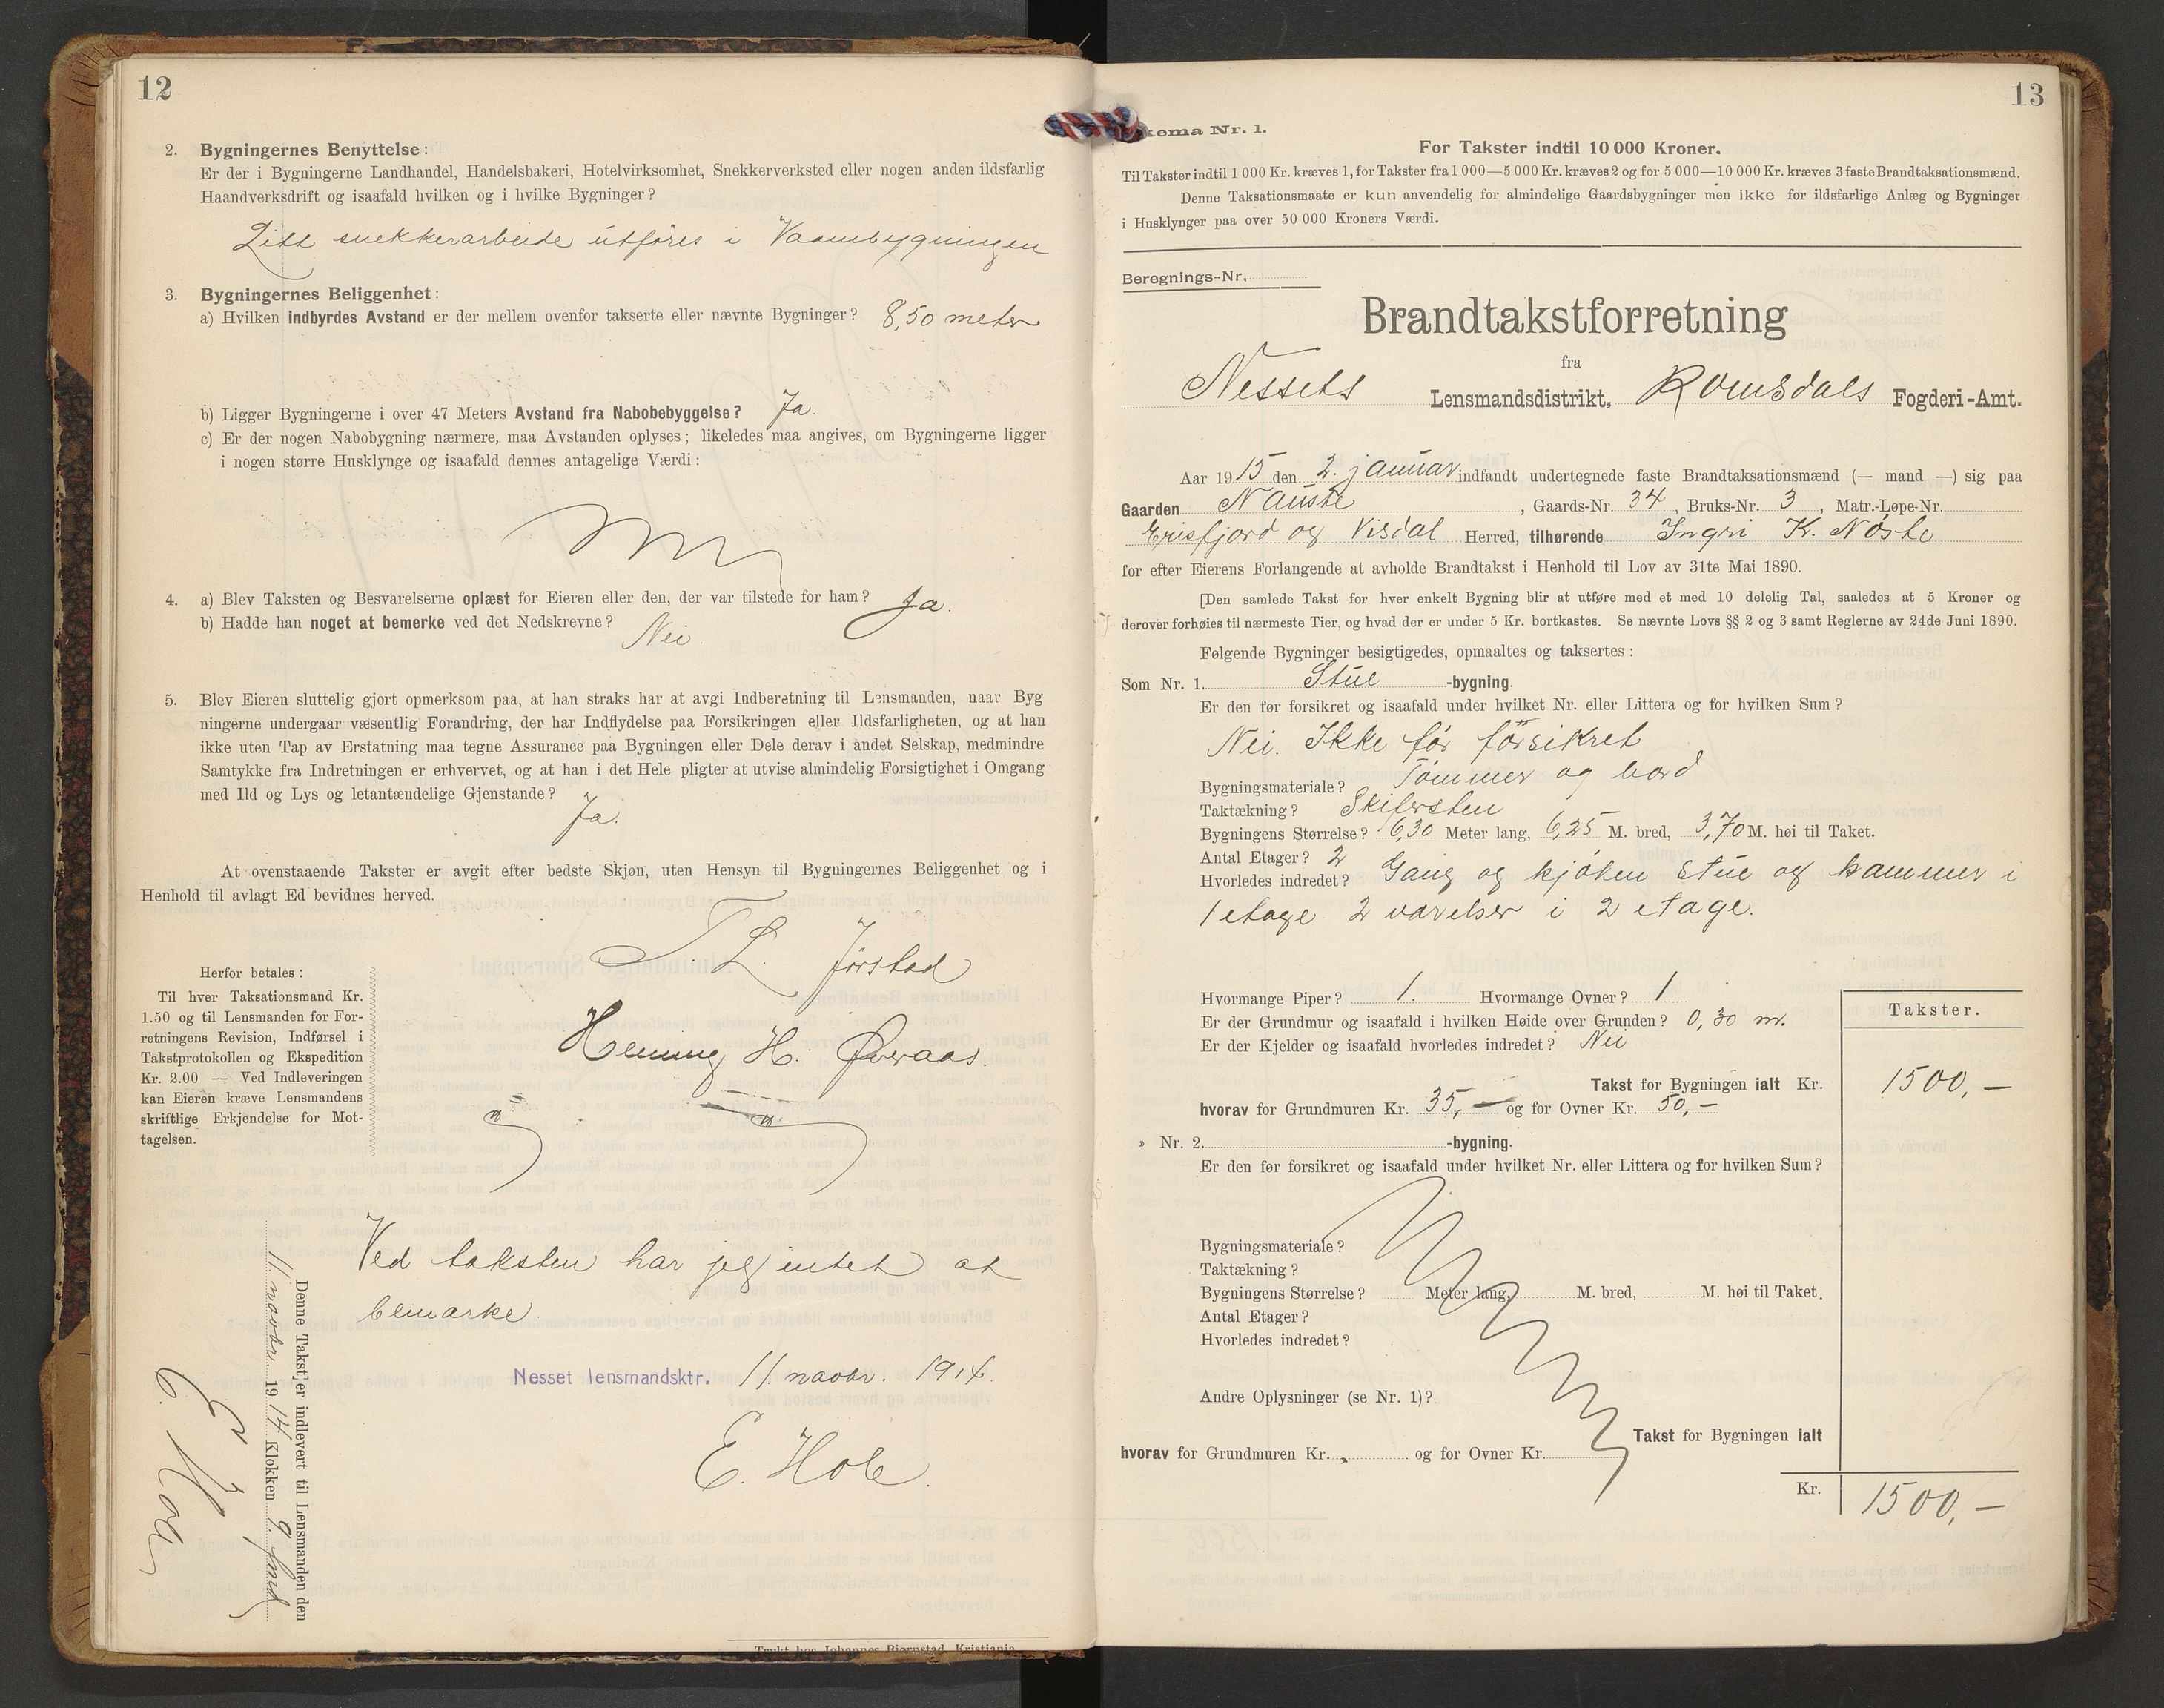 12
2. Bygningernes Benyttelse:
Er der i Bygningerne Landhandel, Handelsbakeri, Hotelvirksomhet, Snekkerverksted eller nogen anden ildsfarlig
Haandverksdrift og isaafald hvilken og i hvilke Bygninger?
Litt snekkerarbeide utføres i Vaanbygningen
3. Bygningernes Beliggenhet:
a) Hvilken indbyrdes Avstand er der mellem ovenfor takserte eller nævnte Bygninger? 8,50 meter
b) Ligger Bygningerne i over 47 Meters Avstand fra Nabobebyggelse? Ja.
c) Er der nogen Nabobygning nærmere, maa Avstanden oplyses; likeledes maa angives, om Bygningerne ligger
i nogen større Husklynge og isaafald dennes antagelige Værdi:
4. a) Blev Taksten og Besvarelserne oplæst for Eieren eller den, der var tilstede for ham? Ja.
b) Hadde han noget at bemerke ved det Nedskrevne? Nei.
5. Blev Eieren sluttelig gjort opmerksom paa, at han straks har at avgi Indberetning til Lensmanden, naar Byg
ningerne undergaar væsentlig Forandring, der har Indflydelse paa Forsikringen eller Ildsfarligheten, og at han
ikke uten Tap av Erstatning maa tegne Assurance paa Bygningen eller Dele derav i andet Selskap, medmindre
Samtykke fra Indretningen er erhvervet, og at han i det Hele pligter at utvise almindelig Forsigtighet i Omgang
med Ild og Lys og letantændelige Gjenstande? Ja.
At ovenstaaende Takster er avgit efter bedste Skjøn, uten Hensyn til Bygningernes Beliggenhet og i
Henhold til avlagt Ed bevidnes herved.
T. L. Jørstad
Henning H. Øveraas.
Herfor betales:
Til hver Taksationsmand Kr.
1.50 og til Lensmanden for For-
retningens Revision, Indførsel i
Takstprotokollen og Ekspedition
Kr. 2.00 — Ved Indleveringen
kan Eieren kræve Lensmandens
skriftlige Erkjendelse for Mot-
tagelsen.
Ved taksten har jeg intet at
bemærke
Nesset lensmandsktr. 11. novbr. 1914.
E. Hole.
Denne Takst er indlevert til Lensmanden den
11 novbr. 1914 Klokken 9 fmd.
E. Hole
Trykt hos Johannes Bjørnstad, Kristiania.
13
kema Nr. 1.
For Takster indtil 10 000 Kroner.
Til Takster indtil 1 000 Kr. kræves 1, for Takster fra 1 000—5 000 Kr. kræves 2 og for 5 000—10 000 Kr. kræves 3 faste Brandtaksationsmænd.
Denne Taksationsmaate er kun anvendelig for almindelige Gaardsbygninger men ikke for ildsfarlige Anlæg og Bygninger
i Husklynger paa over 50 000 Kroners Værdi.
Beregnings-Nr.
Brandtakstforretning
fra
Nessets Lensmandsdistrikt, Romsdals Fogderi-Amt.
Aar 1915 den 2. januar indfandt undertegnede faste Brandtaksationsmænd (— mand —) sig paa
Gaarden Nauste, Gaards-Nr. 34, Bruks-Nr. 3, Matr.-Løpe-Nr.
Erisfjord og Visdal Herred, tilhørende Ingri K. Nöste
for efter Eierens Forlangende at avholde Brandtakst i Henhold til Lov av 31te Mai 1890.
[Den samlede Takst for hver enkelt Bygning blir at utføre med et med 10 delelig Tal, saaledes at 5 Kroner og
derover forhøies til nærmeste Tier, og hvad der er under 5 Kr. bortkastes. Se nævnte Lovs §§ 2 og 3 samt Reglerne av 24de Juni 1890.
Følgende Bygninger besigtigedes, opmaaltes og taksertes:
Som Nr. 1. Stue -bygning.
Er den før forsikret og isaafald under hvilket Nr. eller Littera og for hvilken Sum?
Nei. Ikke før försikret
Bygningsmateriale? Tømmer og bord
Taktækning? Skifersten
Bygningens Størrelse? 6,30 Meter lang, 6,25 M. bred, 3,70 M. høi til Taket.
Antal Etager? 2
Hvorledes indredet? Gang og kjøken stue og kammer i
1 etage 2 værelser i 2 etage.
Hvormange Piper? 1. Hvormange Ovner? 1
Er der Grundmur og isaafald i hvilken Høide over Grunden? 0,30 m.
Er der Kjelder og isaafald hvorledes indredet? Nei
Takster.
Takst for Bygningen ialt Kr. 1500,—
hvorav for Grundmuren Kr. 35,— og for Ovner Kr. 50,—
» Nr. 2. -bygning.
Er den før forsikret og isaafald under hvilket Nr. eller Littera og for hvilken Sum?
Bygningsmateriale?
Taktækning?
Bygningens Størrelse? Meter lang, M. bred, M. høi til Taket.
Antal Etager?
Hvorledes indredet?
Andre Oplysninger (se Nr. 1)?
Takst for Bygningen ialt
hvorav for Grundmuren Kr. og for Ovner Kr.
Kr. 1500,—